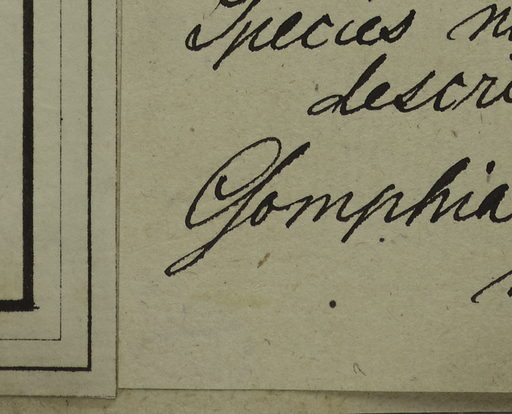 Species n
descri
Gomphia